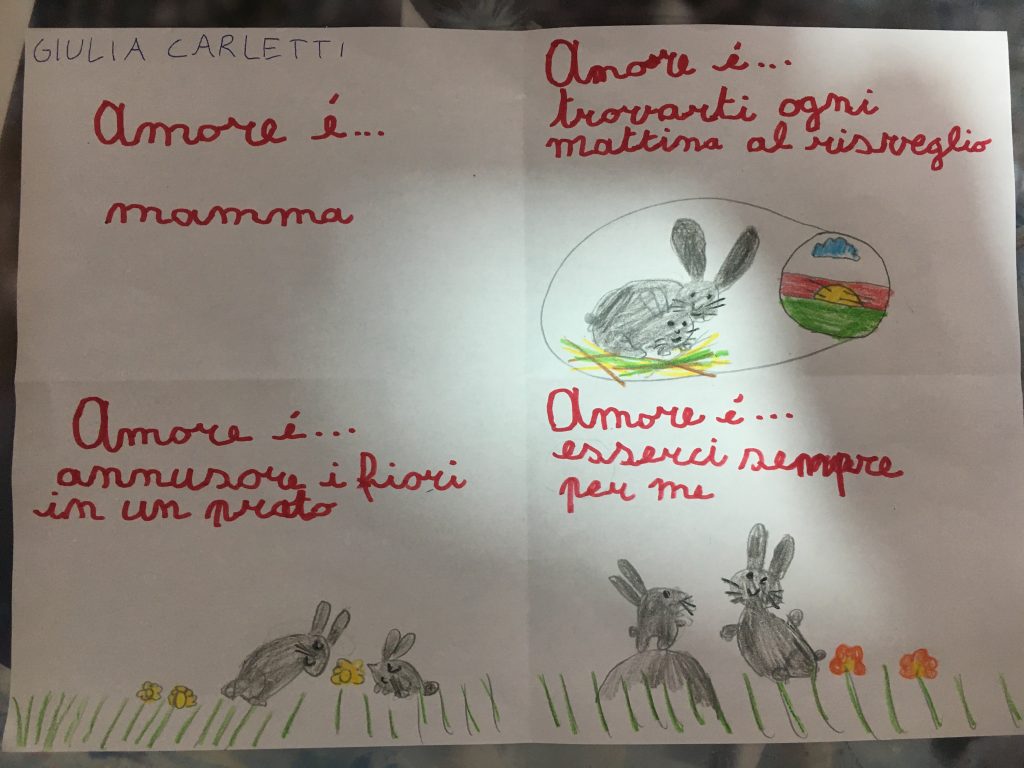 GIULIA CARLETTI
Amore é...
mamma
Amore é...
trovarti ogni
mattina al risrveglio
Amore é...
annusore i fiori
in un prato
Amore é...
esserci sempre
per me